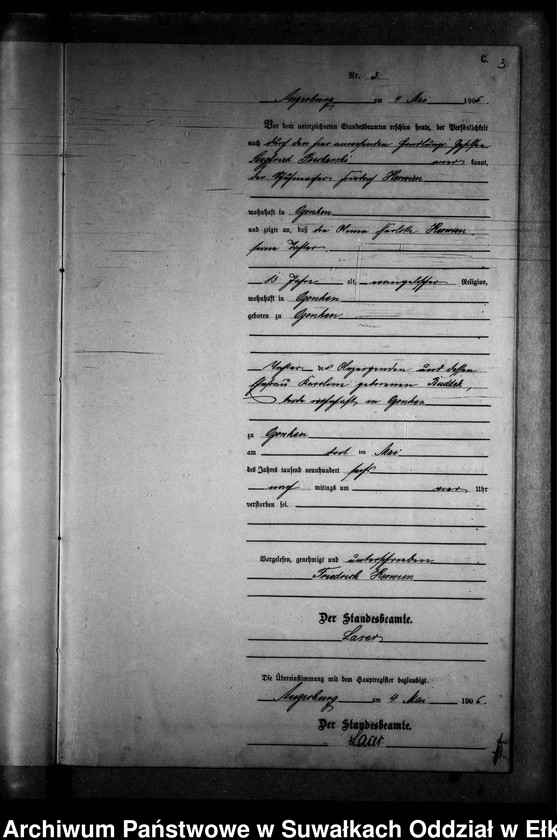 C.
3
Nr. 3.
Angerburg am 4 Mai 1906.
Vor dem unterzeichneten Standesbeamten erschien heute, der Persönlichkeit
nach durch den hier anwesenden
Siegfried kannt,
der Friedrich Herrien
wohnhaft in Gonken
und zeigte an, daß die Herrien,
seine Tochter,
13 Jahre alt, evangelischer Religion,
wohnhaft in Gonken
geboren zu Gonken
Tochter des Anzeigenden und dessen
Ehefrau Karoline geborenen Buddek,
beide wohnhaft in Gonken
zu Gonken
am ten Mai
des Jahres tausend neunhundert sechs
nach mittags um Uhr
verstorben sei.
Vorgelesen, genehmigt und unterschrieben
Friedrich Herrien
Der Standesbeamte.
Laser
Die Übereinstimmung mit dem Hauptregister beglaubigt.
Angerburg am 4 Mai 1906.
Der Standesbeamte.
Laser
Archiwum Państwowe w Suwałkach Oddział w Ełk